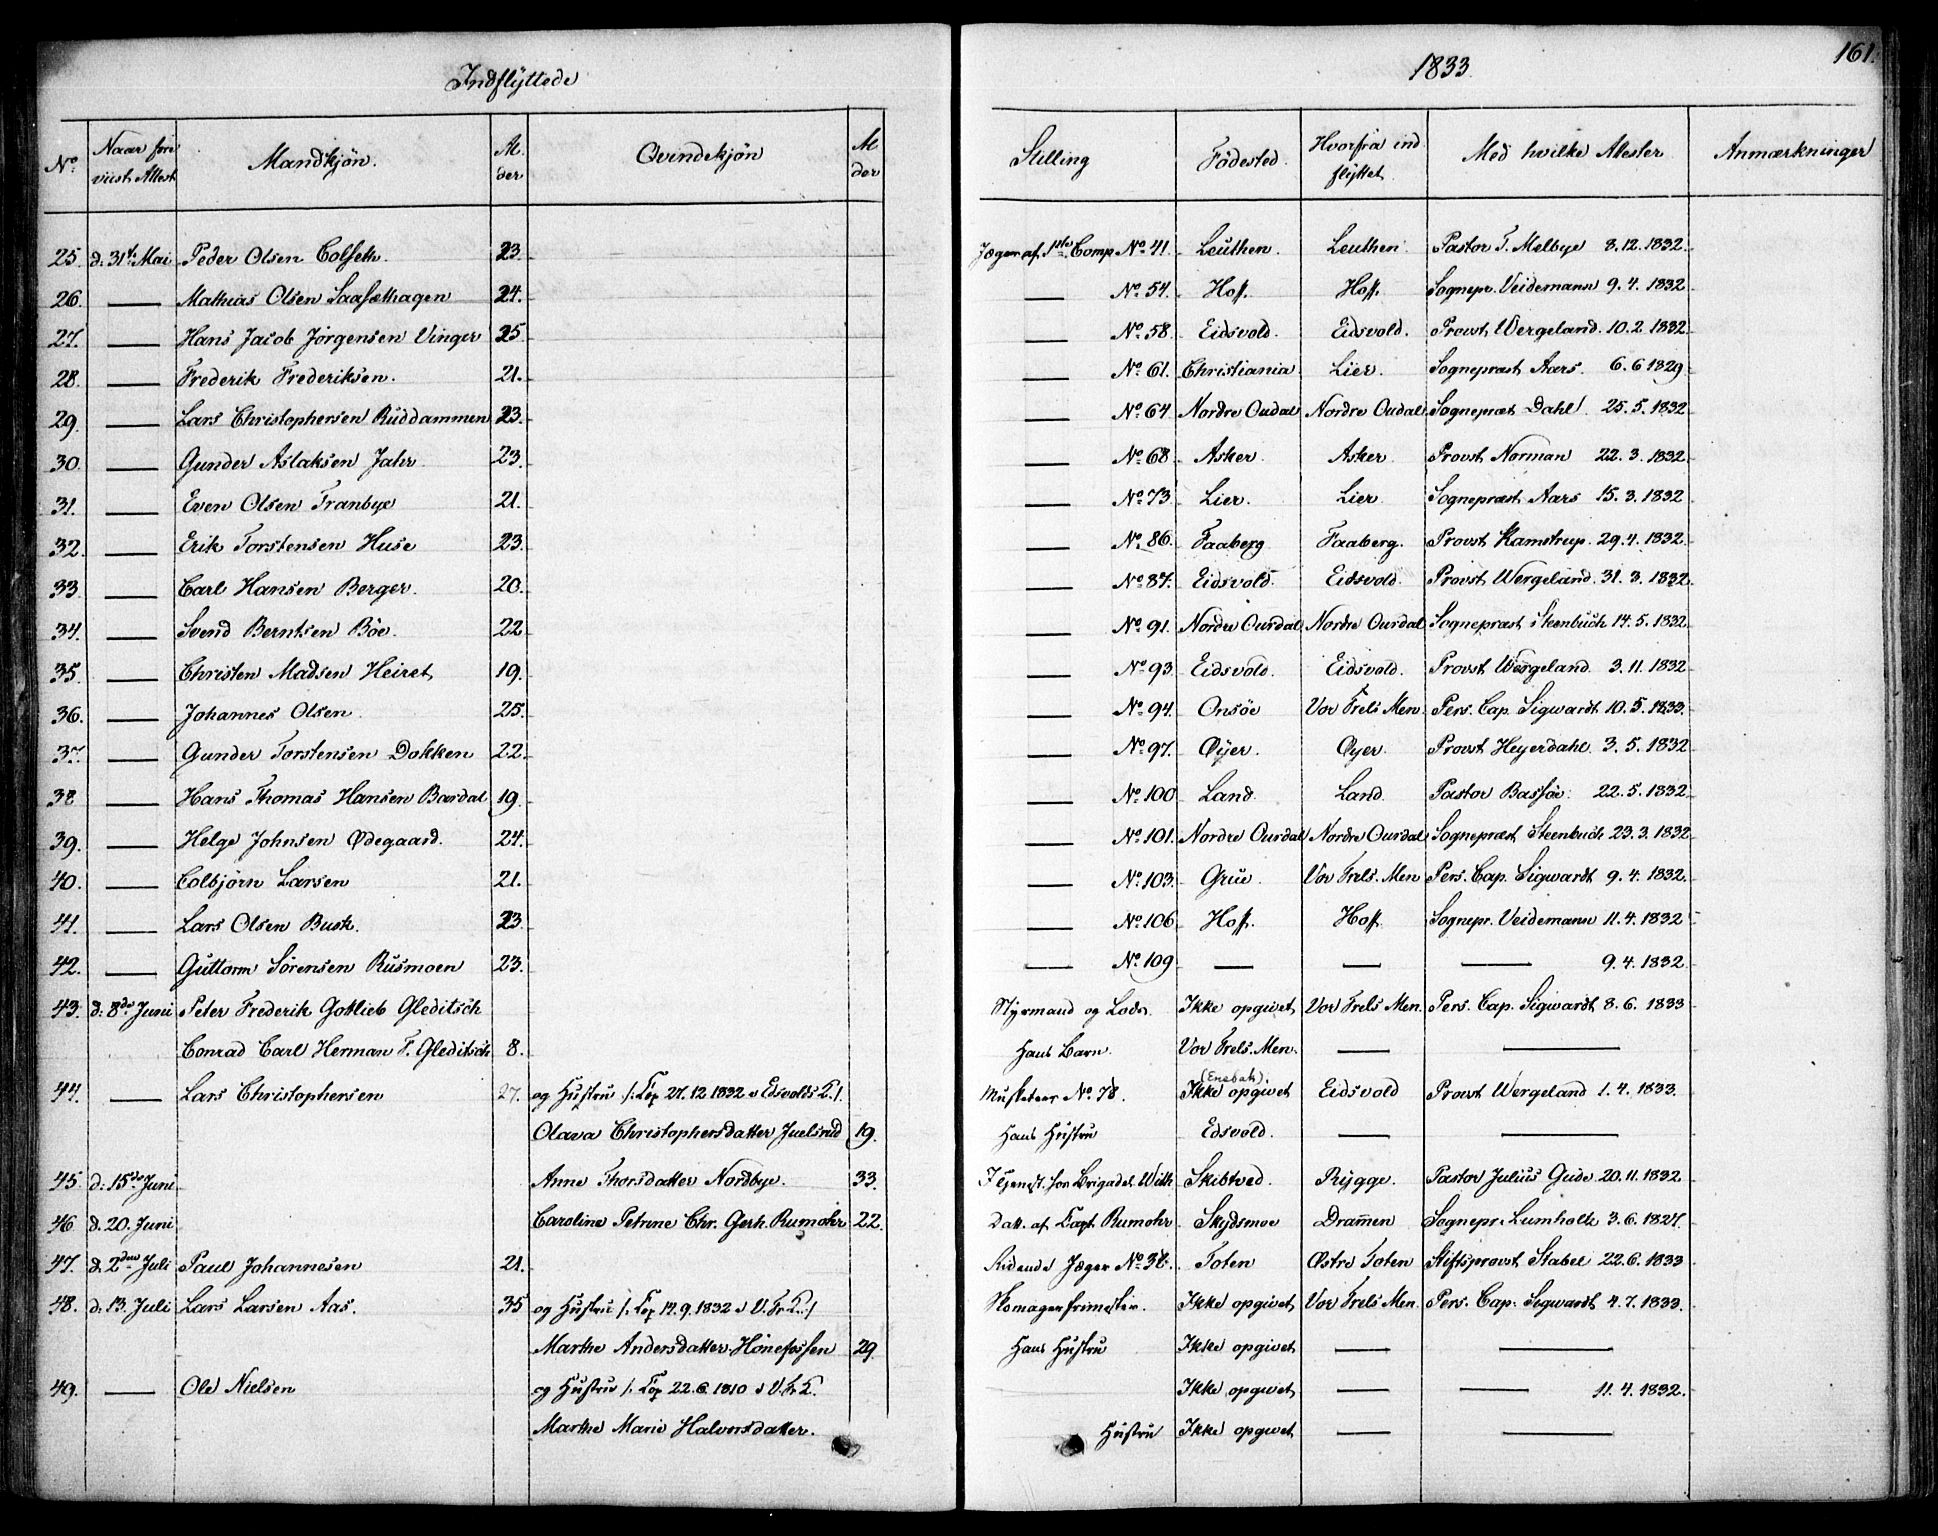 Indflyttede
1833
161.
No. | Naar foreviist Attest | Mandkjøn. | Alder | Qvindekjön | Alder | Stilling | Födested. | Hvorfra indflyttet | Med hvilke Attester | Anmærkninger
25. d. 31te Mai Peder Olsen Colseth. 23. Jæger af 1ste Comp No. 41. Leuthen. Leuthen Pastor F. Melbye 8.12.1832.
26. — Mathias Olsen Saasæthagen 24. — No. 54. Hoff. Hoff. Sognepr. Veidemann 9.4.1832
27. — Hans Jacob Jörgensen Vinger 25 — No. 58. Eidsvold. Eidsvold. Provst Wergeland. 10.2.1832.
28. — Frederik Frederiksen. 21. — No. 61. Christiania Lier. Sognepræst Aars. 6.6 1829.
29. — Lars Christophersen Ruddammen 23. — No. 64. Nordre Oudal Nordre Oudal Sognepræt Dahl 25.5.1832
30. — Gunder Aslaksen Jahr. 23. — No. 68 Asker. Asker. Provst Norman 22.3.1832.
31. — Even Olsen Tranbye 21. — No. 73. Lier. Lier. Sognepræst Aars 15.3.1832
32. — Erik Torstensen Huse 23. — No. 86. Faaberg Faaberg. Provst Kamstrup. 29.4.1832.
33 — Carl Hansen Berger. 20. — No. 87. Eidsvold. Eidsvold. Provst Wergeland. 31.3.1832.
34. — Svend Berntsen Böe. 22 — No. 91. Nordre Ourdal Nordre Ourdal Sognepræst Steenbuch 14.5.1832.
35. — Christen Madsen Heiret 19. — No. 93. Eidsvold. Eidsvold. Provst Wergeland. 3.11.1832
36. — Johannes Olsen. 25. — No. 94. Onsöe Vor Frels Men. Pers. Cap. Sigwardt 10.5.1833.
37. — Gunder Torstensen Dokken 22. — No. 97. Öyer. Öyer. Provst Heyerdahl. 3.5.1832
38 — Hans Thomas Hansen Bardal 19. — No. 100 Land. Land. Pastor Bassöe. 22.5.1832
39. — Helge Johnsen Ødegaard. 24. — No. 101. Nordre Ourdal Nordre Ourdal Sognepræst Steenbuch 23.3.1832
40. — Colbjörn Larsen 21. — No. 103. Grue. Vor Frels. Men Pers. Cap. Sigwardt 9.4.1832.
41. — Lars Olsen Busk. 23. — No. 106 Hoff. Hoff. Sognepr. Veidemann 11.4.1832
42. — Guttorm Sörensen Rusmoen 23. — No. 109 — — — 9.4.1832.
43. d. 8de Juni Peter Frederik Gottlieb Gleditsch Styrmand og Lods. Ikke opgivet Vor Frels Men. Pers. Cap. Sigwardt 8.6.1833
Conrad Carl Herman F. Gleditsch 8. Hans Barn. Vor Frels. Men. — —
44. — Lars Christophersen 27. og Hustru /: Cop 27.12 1832 i Edsvolds K/. Musketeer No. 78. (Enebak). Ikke opgivet Eidsvold Provst Wergeland 1.4.1833.
Olava Christophersdatter Juelsrud 19. Hans Hustru Edsvold. — —
45. d. 15de Juni Anne Thorsdatter Nordbye. 33. I Tjenest. hos Brigadel. With Skibtved. Rygge. Pastor Julius Gude 20.11.1832.
46 d. 20. Juni Caroline Petrine Chr. Gerh. Rumohr 22. Datt. af Capt Rumohr Skydsmoe Dram̄en Sognepr. Lumholtz 3.6.1827.
47. d. 2den Juli Paul Johannesen 21. Ridende Jæger No. 38. Toten Østre Toten Stiftsprovst Stabel 22.6.1833
48. d. 13. Juli Lars Larsen Aas. 35 og Hustru /: Cop 17.9.1832 i V. Fr. K./ Skomagersvend. Ikke opgivet Vor Frels Men. Pers. Cap. Sigwardt 4.7.1833.
Marthe Andersdatter Hönefossen 29. Hans Hustru Ikke opgivet — —
49. — Ole Nielsen og Hustru /: Cop 22.6.1810 i V. Fr. K. Ikke opgivet — — 11.4.1832.
Marthe Marie Halvorsdatter. Hustru Ikke opgivet — —